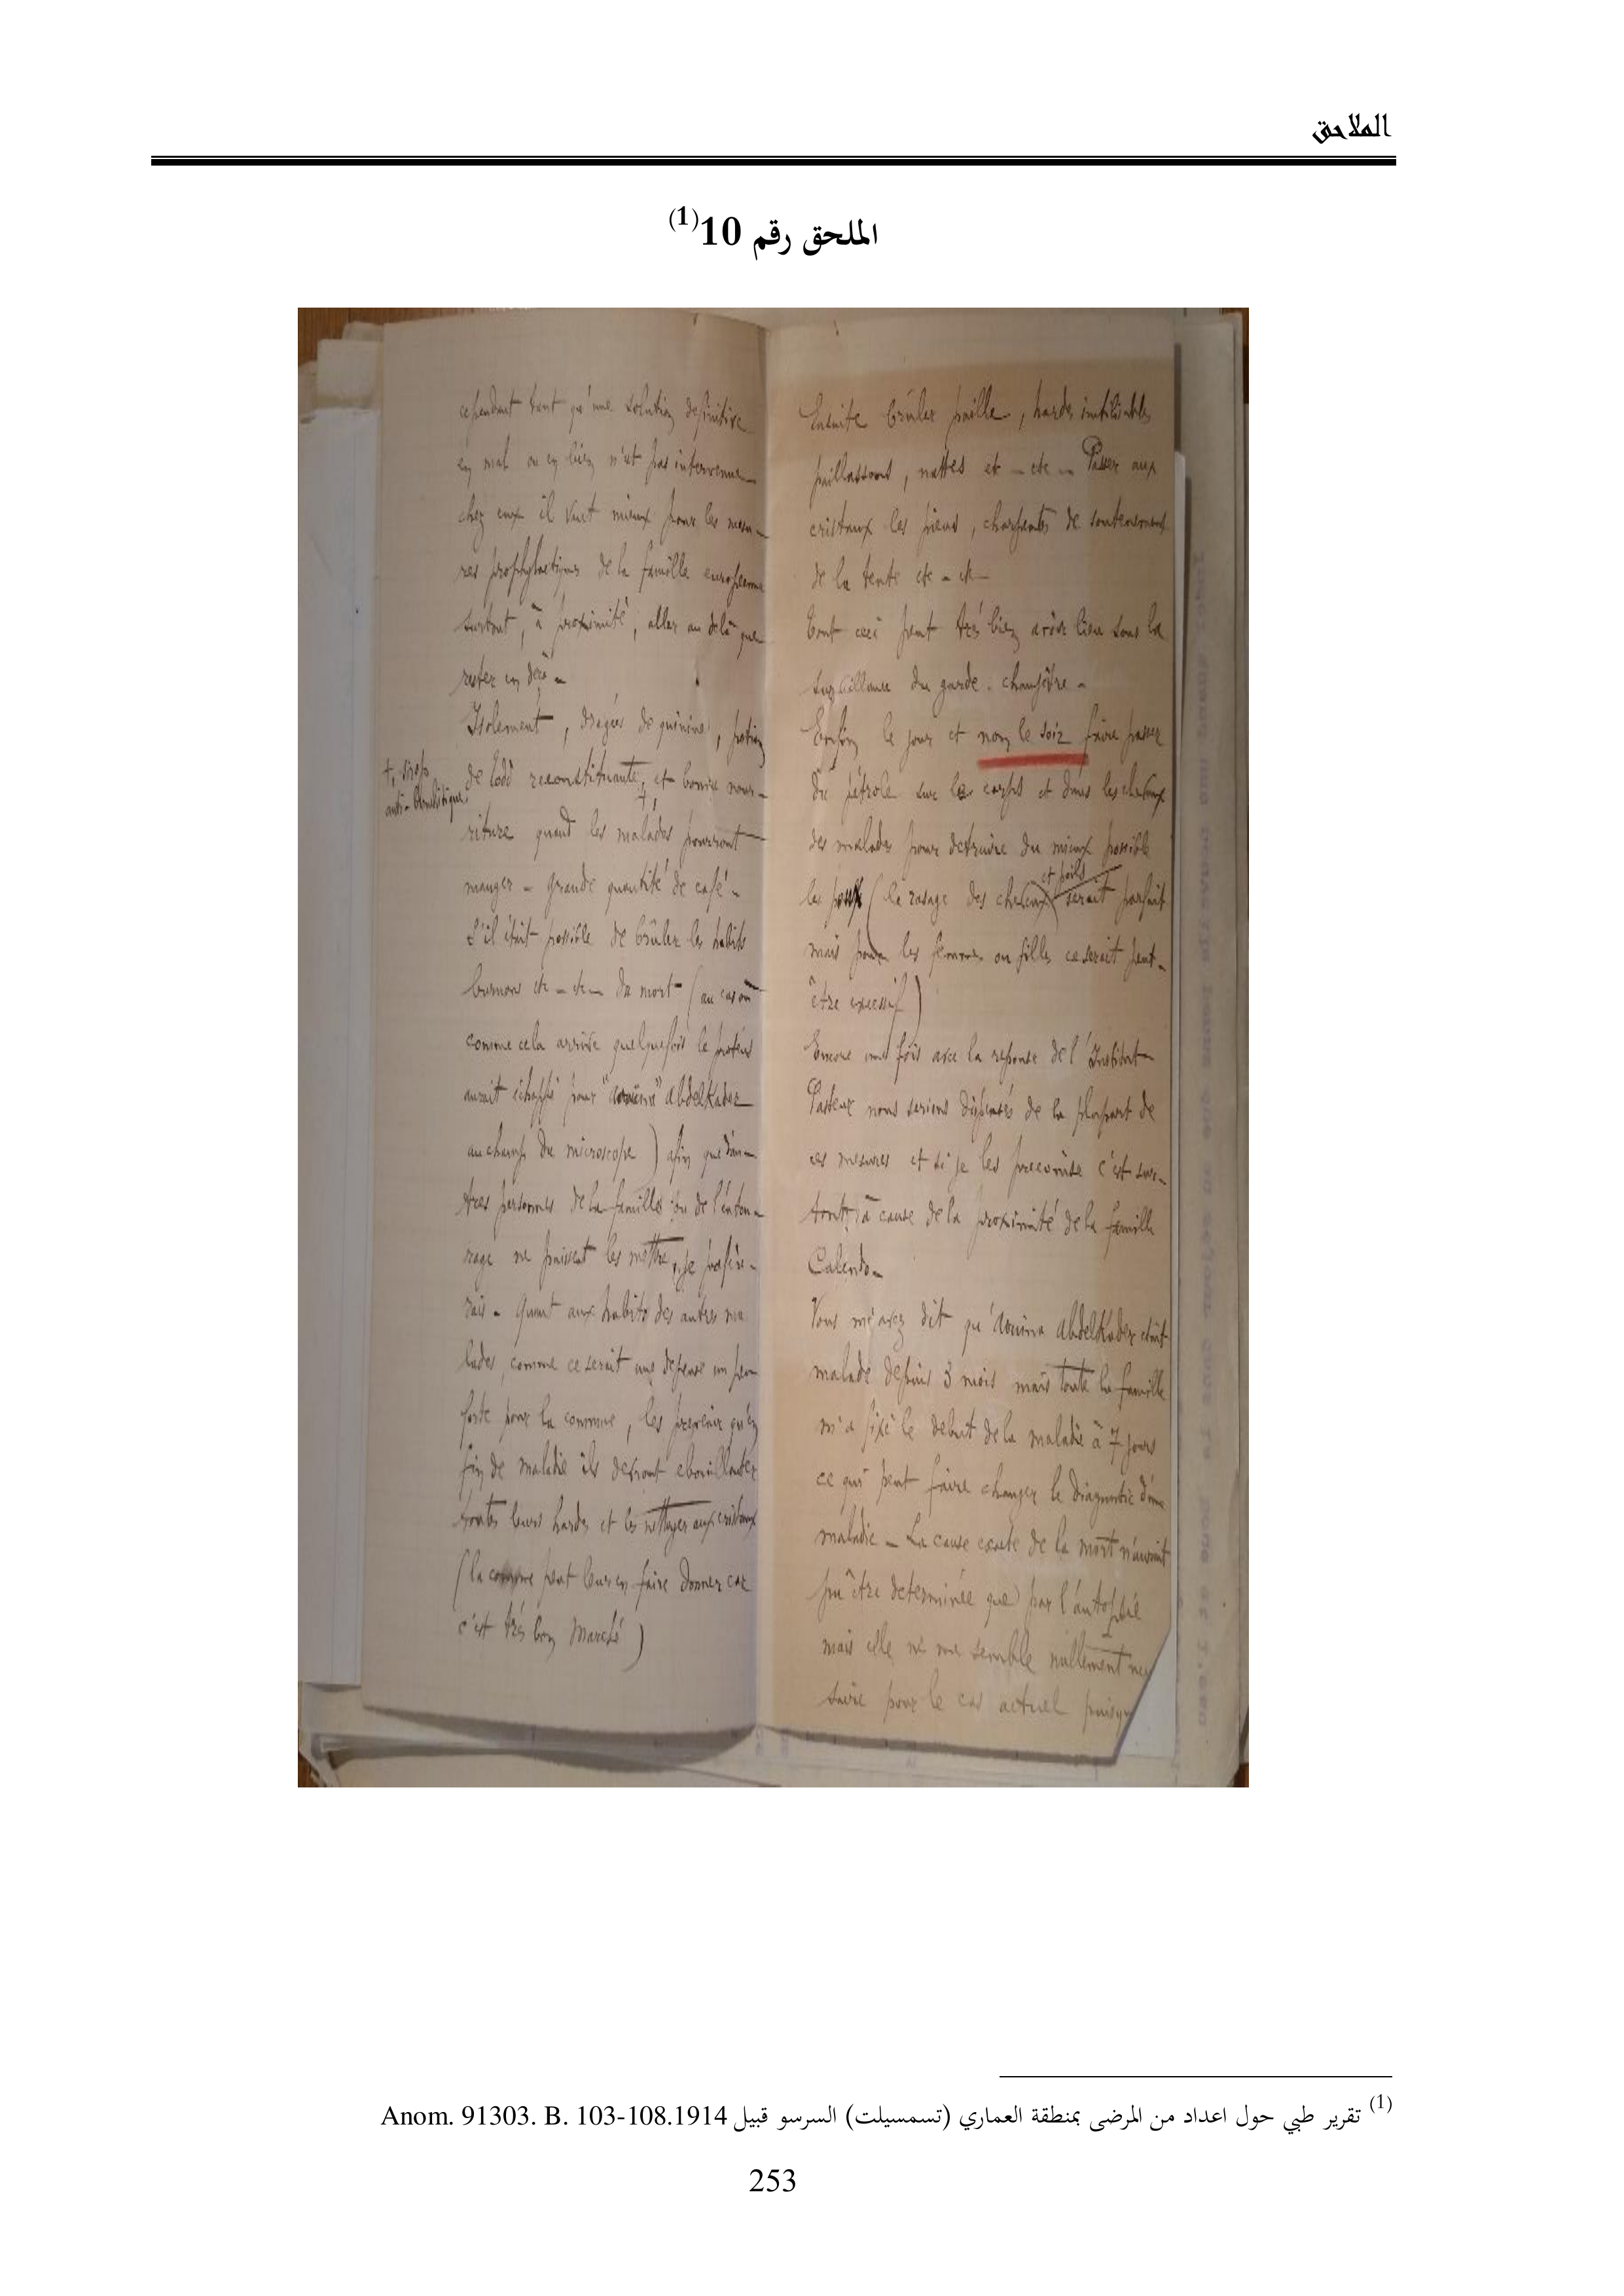 الملاحق
الملحق رقم 10(1)
cependant tant qu'une solution definitive
en mal ou en bien n'est pas intervenue
chez eux il vaut mieux pour les mesu-
res prophylactiques de la famille européenne
surtout, à proximité, aller au delà que
rester en deçà -
Isolement, dragées de quinine, potion
de Todd reconstituante, et bonne nour-
+, sirop
anti-
riture quand les malades pourront
manger - grande quantité de café -
S'il était possible de brûler les habits
burnous etc - etc - du mort (au cas où
comme cela arrive quelquefois le
aurait échappé pour "aouina" abdelKader
au champ du microscope) afin que d'au-
tres personnes de la famille ou de l'entou-
rage ne puissent les mettre, je préfère-
rais - Quant aux habits des autres ma
lades, comme ce serait une depense un peu
forte pour la commune, les prevenir qu'en
fin de maladie ils devront ebouillanter
toutes leurs hardes et les nettoyer aux cristaux
(la commune peut leur en faire donner car
c'est très bon marché)
Ensuite brûler paille, hardes inutilisables
paillassons, nattes et - etc - Passer aux
cristaux les pieux, charpentes de soutenement
de la tente etc - etc -
Tout ceci peut très bien avoir lieu sous la
surveillance du garde-champêtre -
Enfin le jour et non le soir faire passer
du pétrole sur le corps et dans les cheveux
des malades pour detruire du mieux possible
les poux (le rasage des cheveux et poils serait parfait
mais pour les femmes ou filles ce serait peut-
être excessif)
Encore une fois avec la reponse de l'Institut
Pasteur nous serions dispensés de la plupart de
ces mesures et si je les preconise c'est sur-
tout à cause de la proximité de la famille
Calendo -
Vous m'avez dit qu'aouina abdelKader était
malade depuis 3 mois mais toute la famille
m'a fixé le debut de la maladie à 7 jours
ce qui peut faire changer le diagnostic d'une
maladie - La cause exacte de la mort n'aurait
pu être determinée que par l'autopsie
mais elle ne me semble nullement
saire pour le cas actuel
(1) تقرير طبي حول اعداد من المرضى بمنطقة العماري (تسمسيلت) السرسو قبيل Anom. 91303. B. 103-108.1914
253